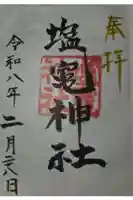 奉拝
塩竃神社
令和八年二月二八日